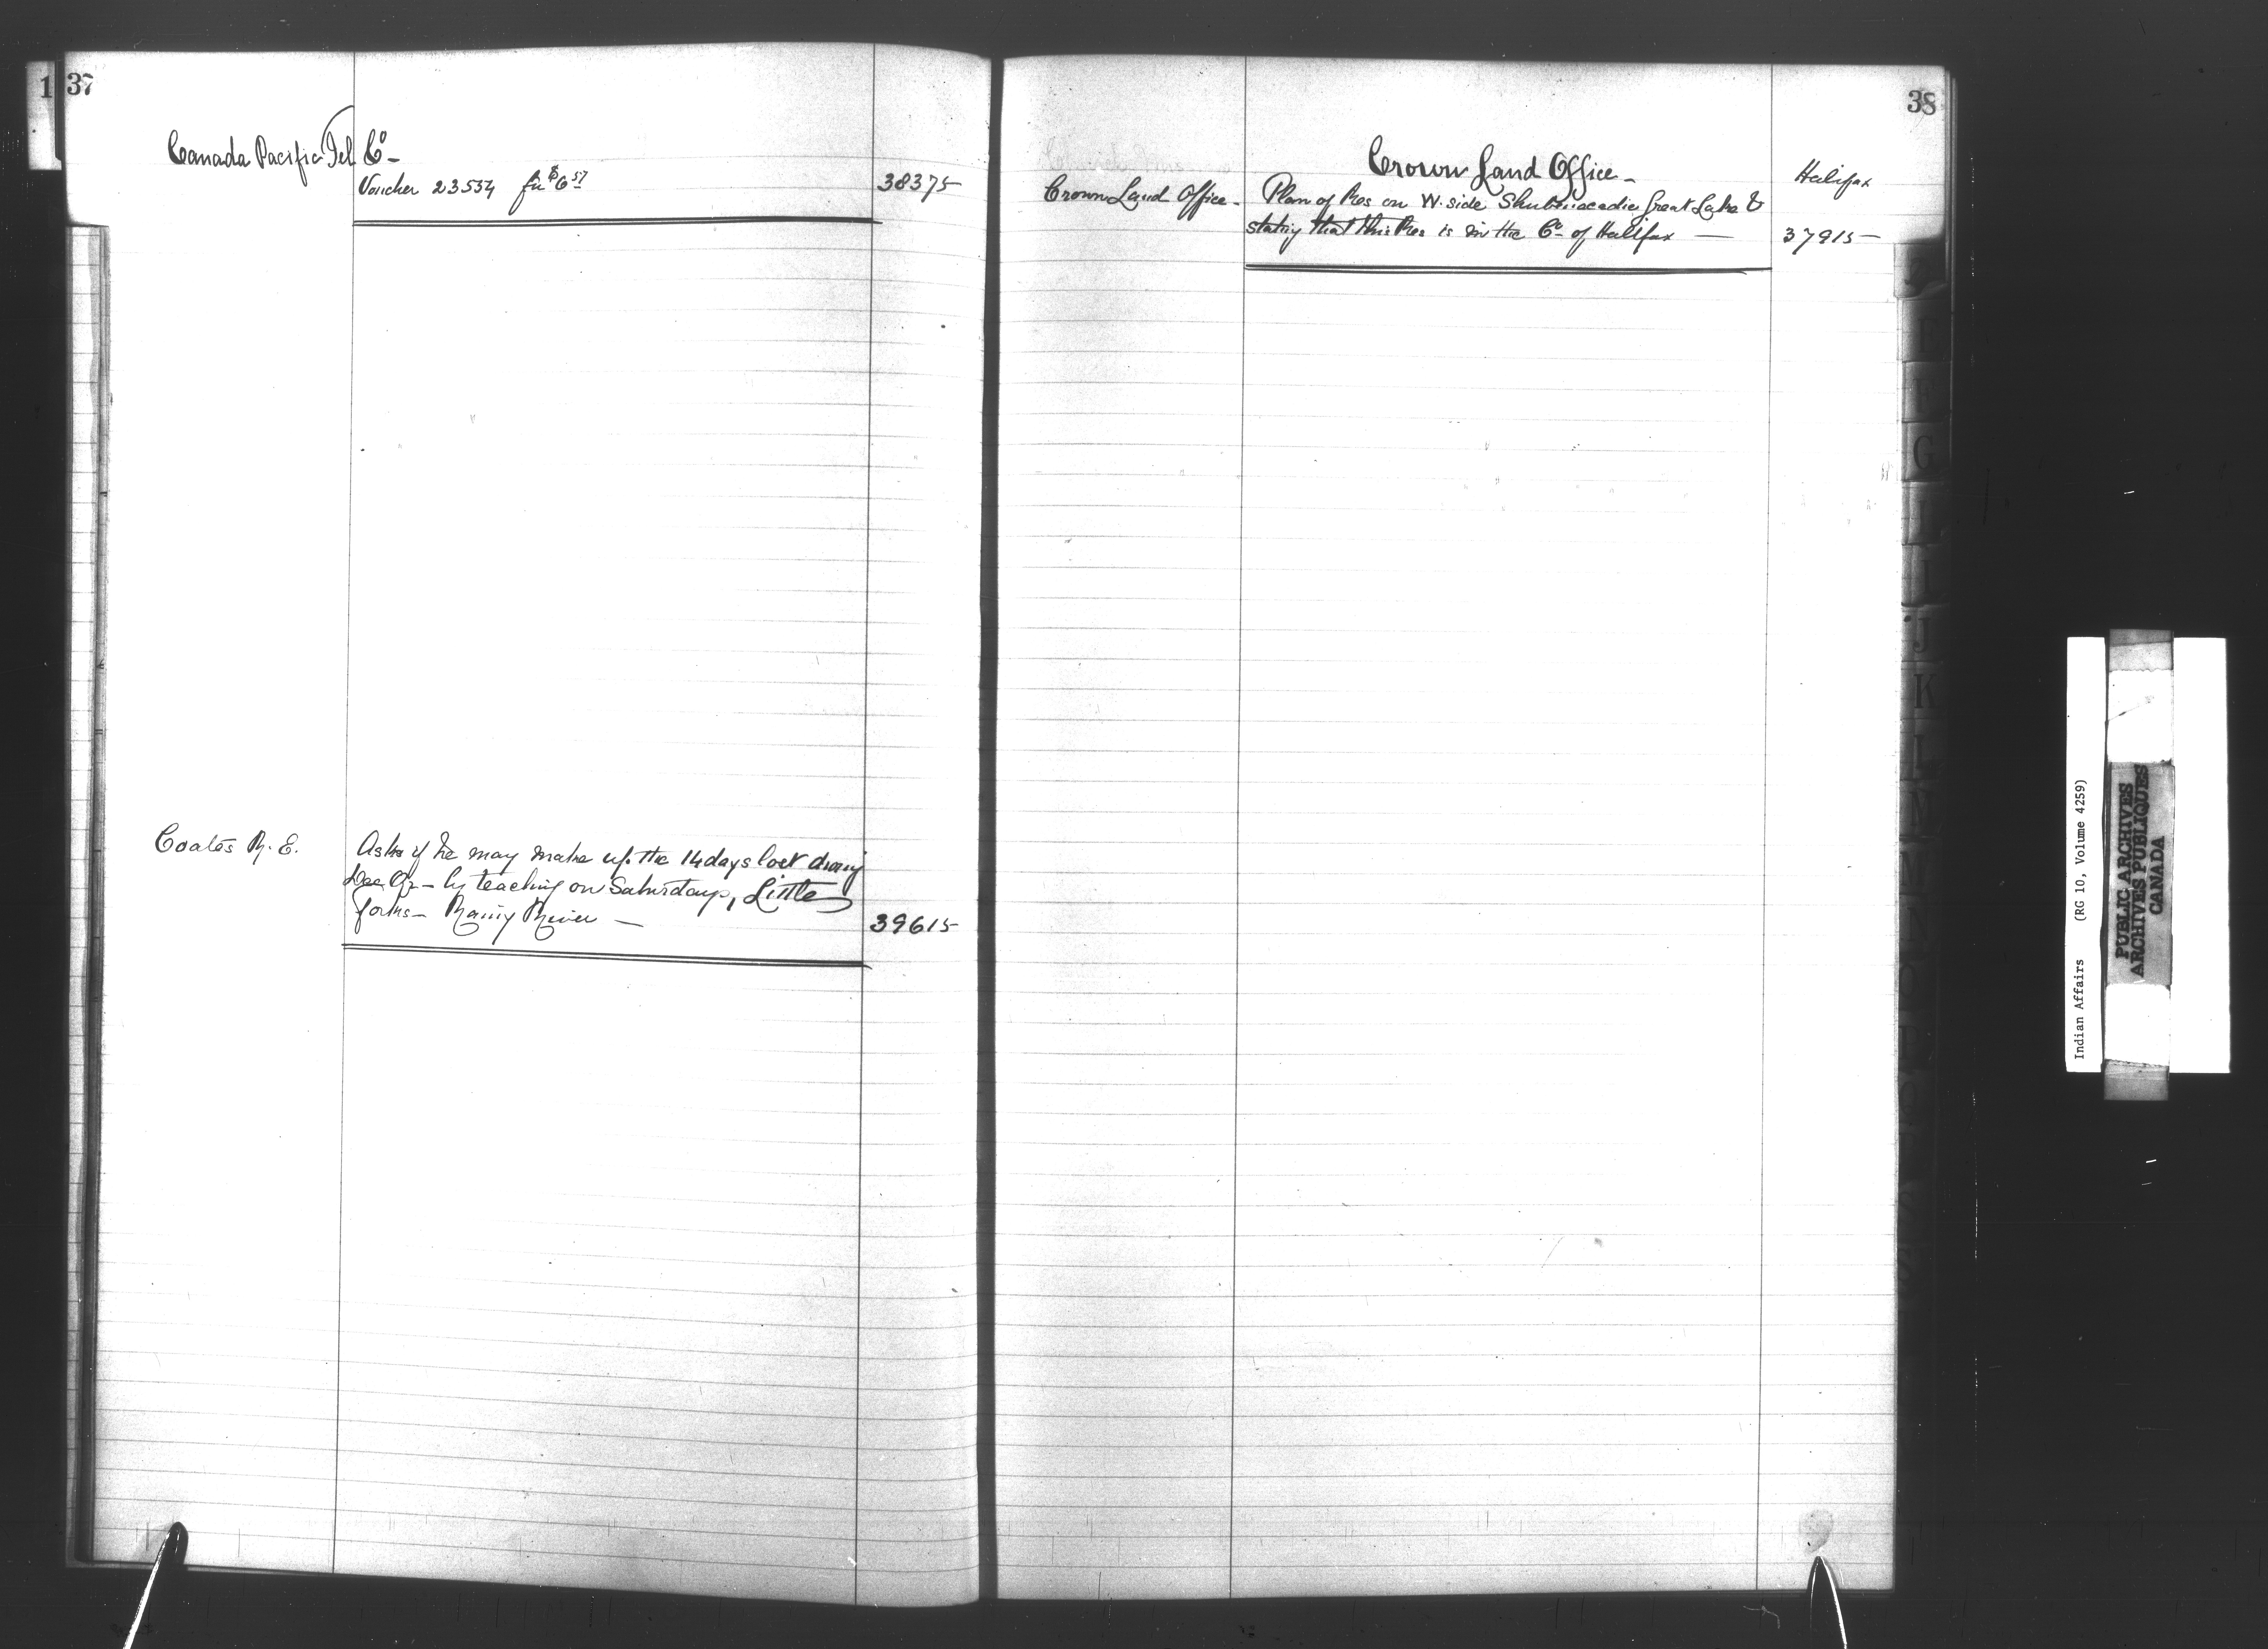 1
37
Canada Pacific Tel Co -
Voucher 23534 for $6.57
38375
Coates R. E.
Asks if he may make up the 14 days lost during
Dec Qr - by teaching on Saturdays, Little
forks - Rainy River -
39615
38
Crown Land Office -
Halifax
Crown Land Office -
Plan of Res on W. side Shubenacadie Great Lake &
stating that this Res is in the Co of Halifax -
37915
G
J
K
L
Indian Affairs (RG 10, Volume 4259)
PUBLIC ARCHIVES
ARCHIVES PUBLIQUES
CANADA